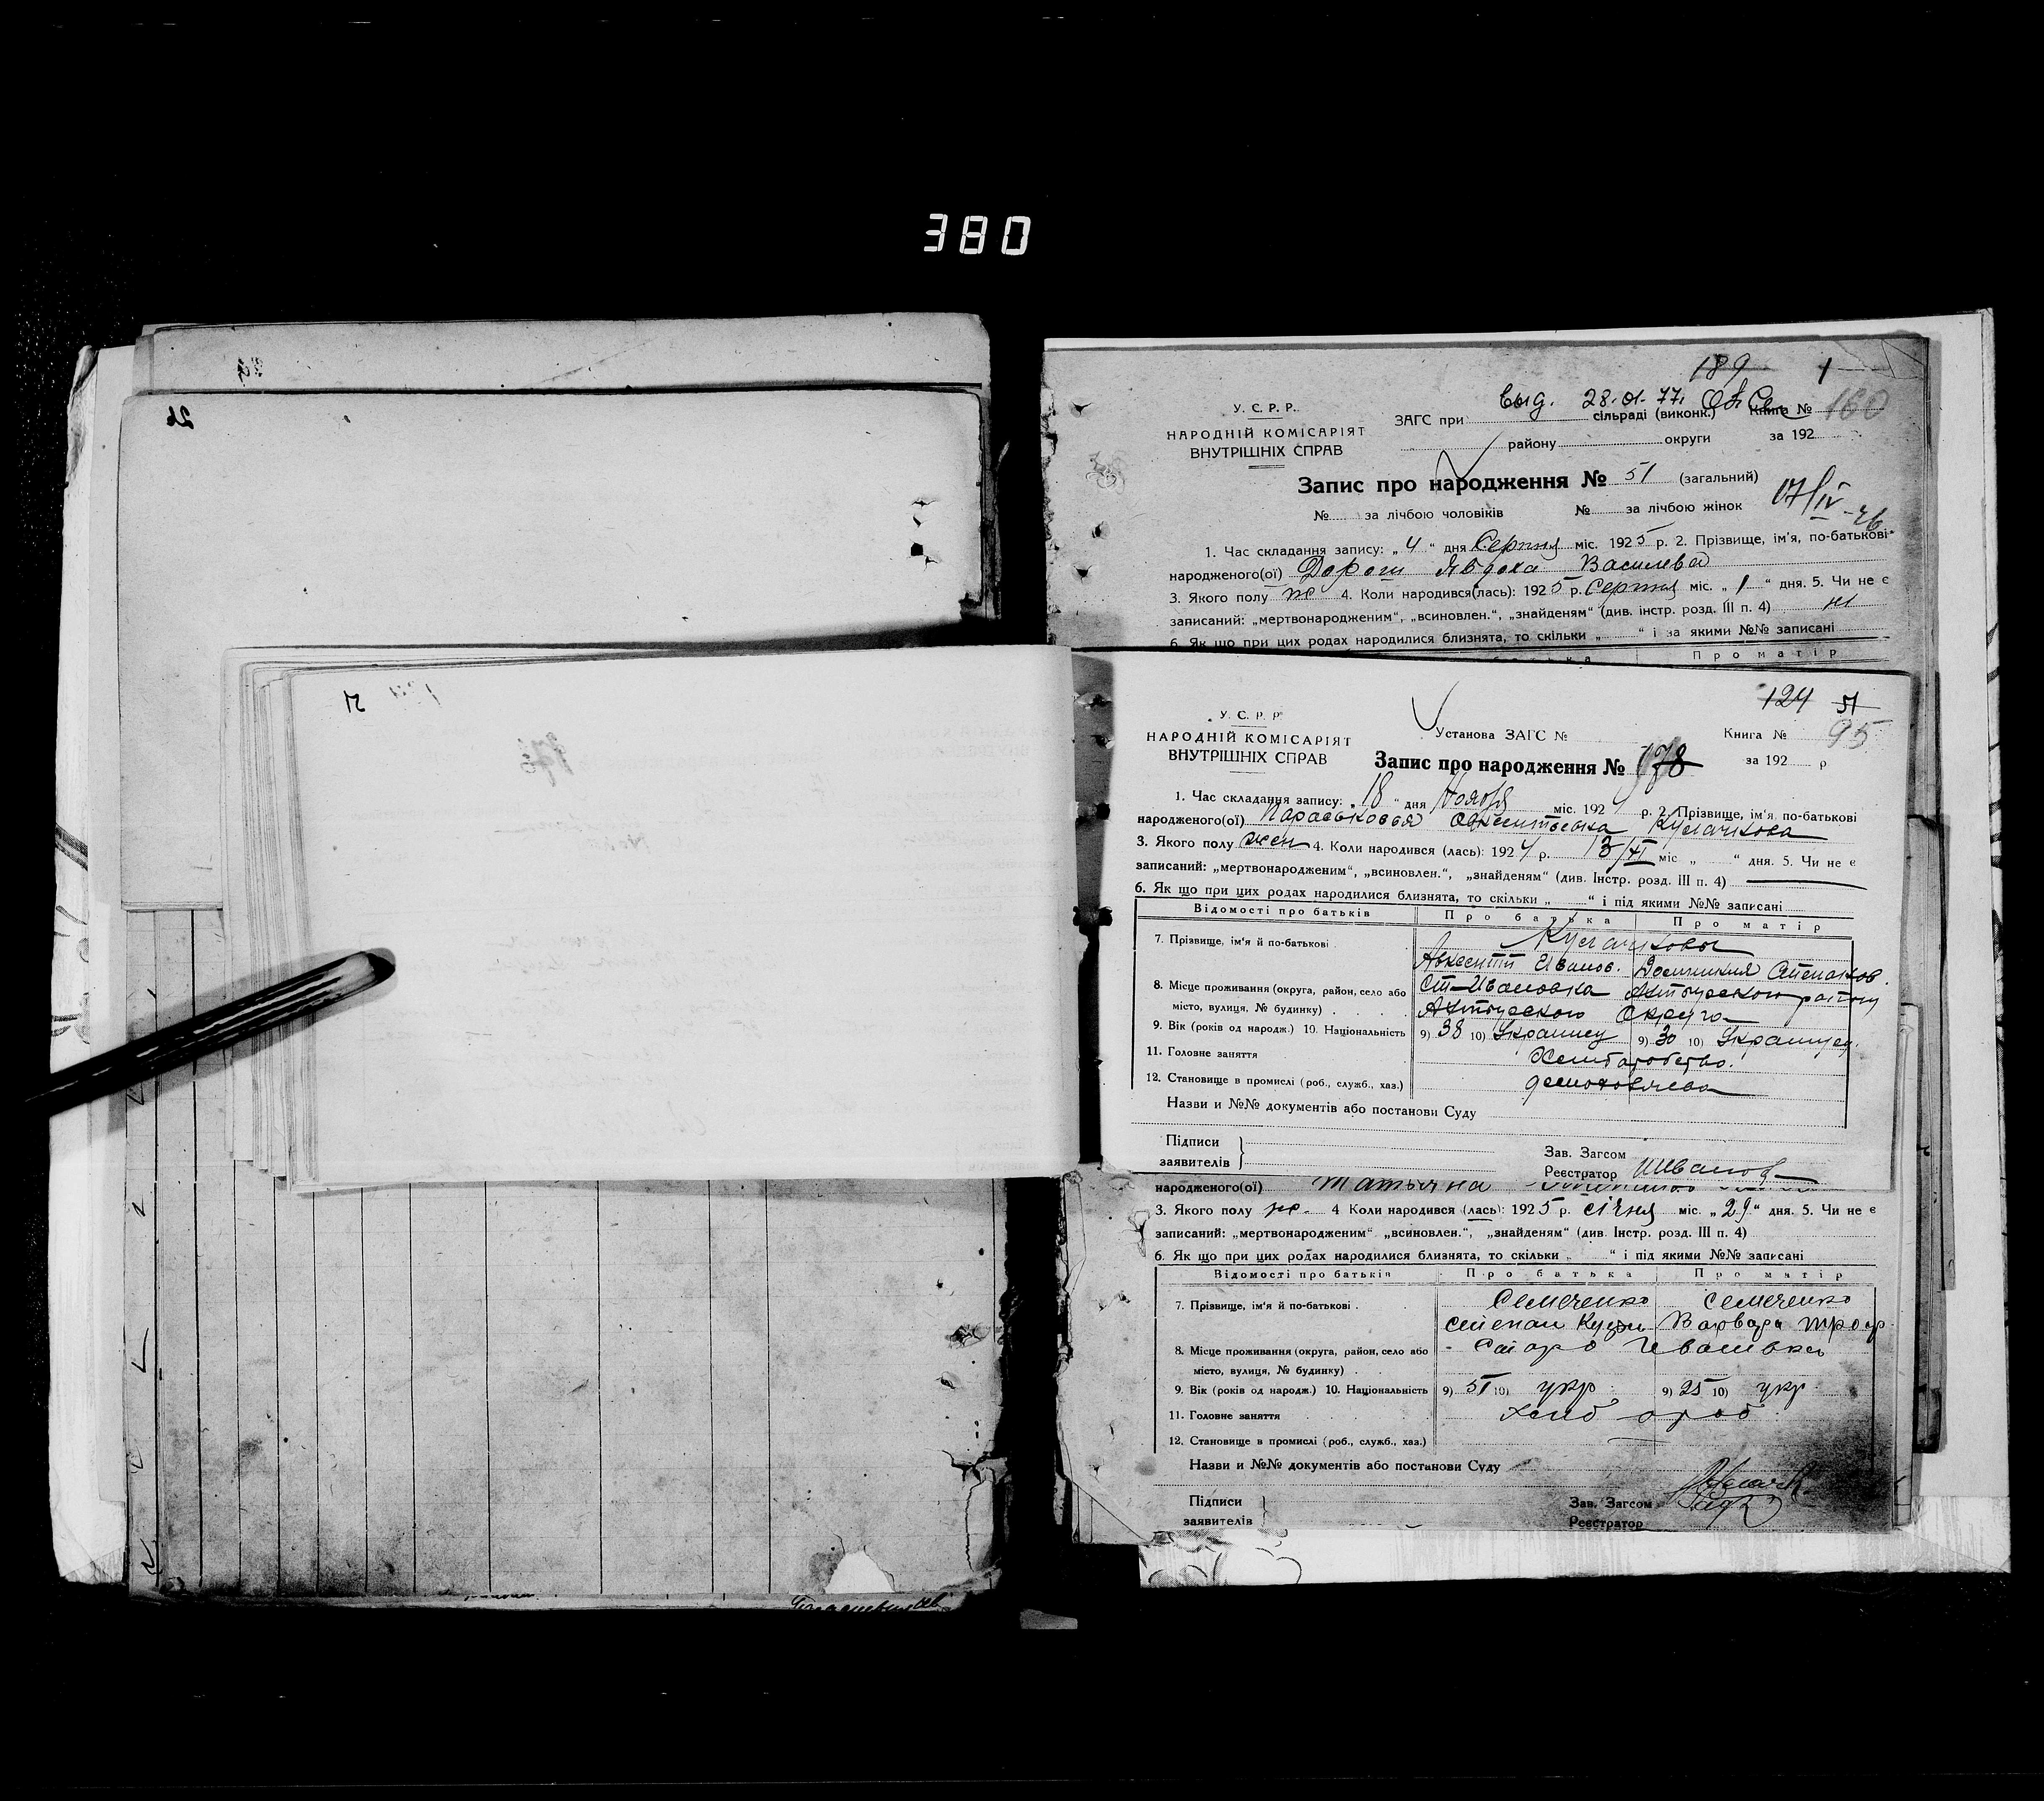 380
26
189 1
выд. 28.01.77.
У. С. Р. Р.
НАРОДНІЙ КОМІСАРІЯТ
ВНУТРІШНІХ СПРАВ
ЗАГС при сільраді (виконк.) Книга № 160
району округи за 192
Запис про народження № 51 (загальний)
№ за лічбою чоловіків № за лічбою жінок
17/IV-26
1. Час складання запису: „ 4 “ дня Серпня міс. 1925 р. 2. Прізвище, ім'я, по-батькові
народженого(ої) Дорош Явдоха Василева
3. Якого полу ж 4. Коли народився(лась): 1925 р. Серпня міс. „ 1 “ дня. 5. Чи не є
записаний: „мертвонародженим“, „всиновлен.“, „знайденям“ (див. інстр. розд. III п. 4) ні
6. Як що при цих родах народилися близнята, то скільки „ “ і за якими №№ записані
Про матір
124 51
У. С. Р. Р
НАРОДНІЙ КОМІСАРІЯТ
ВНУТРІШНІХ СПРАВ
Установа ЗАГС № Книга № 95
Запис про народження № 178 за 192 р
1. Час складання запису: „ 18 “ дня Ноября міс. 1924 р. 2. Прізвище, ім'я, по-батькові
народженого(ої) Параськовья
3. Якого полу жен 4. Коли народився (лась): 1924 р. 13/XI міс „ “ дня. 5. Чи не є
записаний: „мертвонародженим“, „всиновлен.“, „знайденям“ (див. Інстр. розд. III п. 4)
6. Як що при цих родах народилися близнята, то скільки „ “ і під якими №№ записані
Відомості про батьків Про батька Про матір
7. Прізвище, ім'я й по-батькові
Авксентий Иванов. Степанов.
8. Місце проживання (округа, район, село або Ст-Ивановка Ахтырского району
місто, вулиця, № будинку) Ахтырского Округа
9. Вік (років од народж.) 10. Національність 9) 38 10) Украинец 9) 30 10) Украинец.
11. Головне заняття Хлибаробство.
12. Становище в промислі (роб., служб., хаз.) домохозяева
Назви и №№ документів або постанови Суду
Підписи
заявителів
Зав. Загсом
Реєстратор ИИванов
народженого(ої) Татьяна
3. Якого полу ж. 4 Коли народився (лась): 1925 р. січня міс. „ 29 “ дня. 5. Чи не є
записаний: „мертвонародженим“ „всиновлен.“, „знайденям“ (див. Інстр. розд. III п. 4)
6. Як що при цих родах народилися близнята, то скільки „ “ і під якими №№ записані
Відомості про батьків Про батька Про матір
7. Прізвище, ім'я й по-батькові . Семченко Семченко
Степан Кузм Варвара Троф.
8. Місце проживання (округа, район, село або Старо Ивановка
місто, вулиця, № будинку) .
9. Вік (років од народж.) 10. Національність 9) 51 10) укр. 9) 25 10) укр.
11. Головне заняття хліб ороб
12. Становище в промислі (роб., служб., хаз.)
Назви и №№ документів або постанови Суду
Підписи
заявителів
Зав. Загсом
Реєстратор